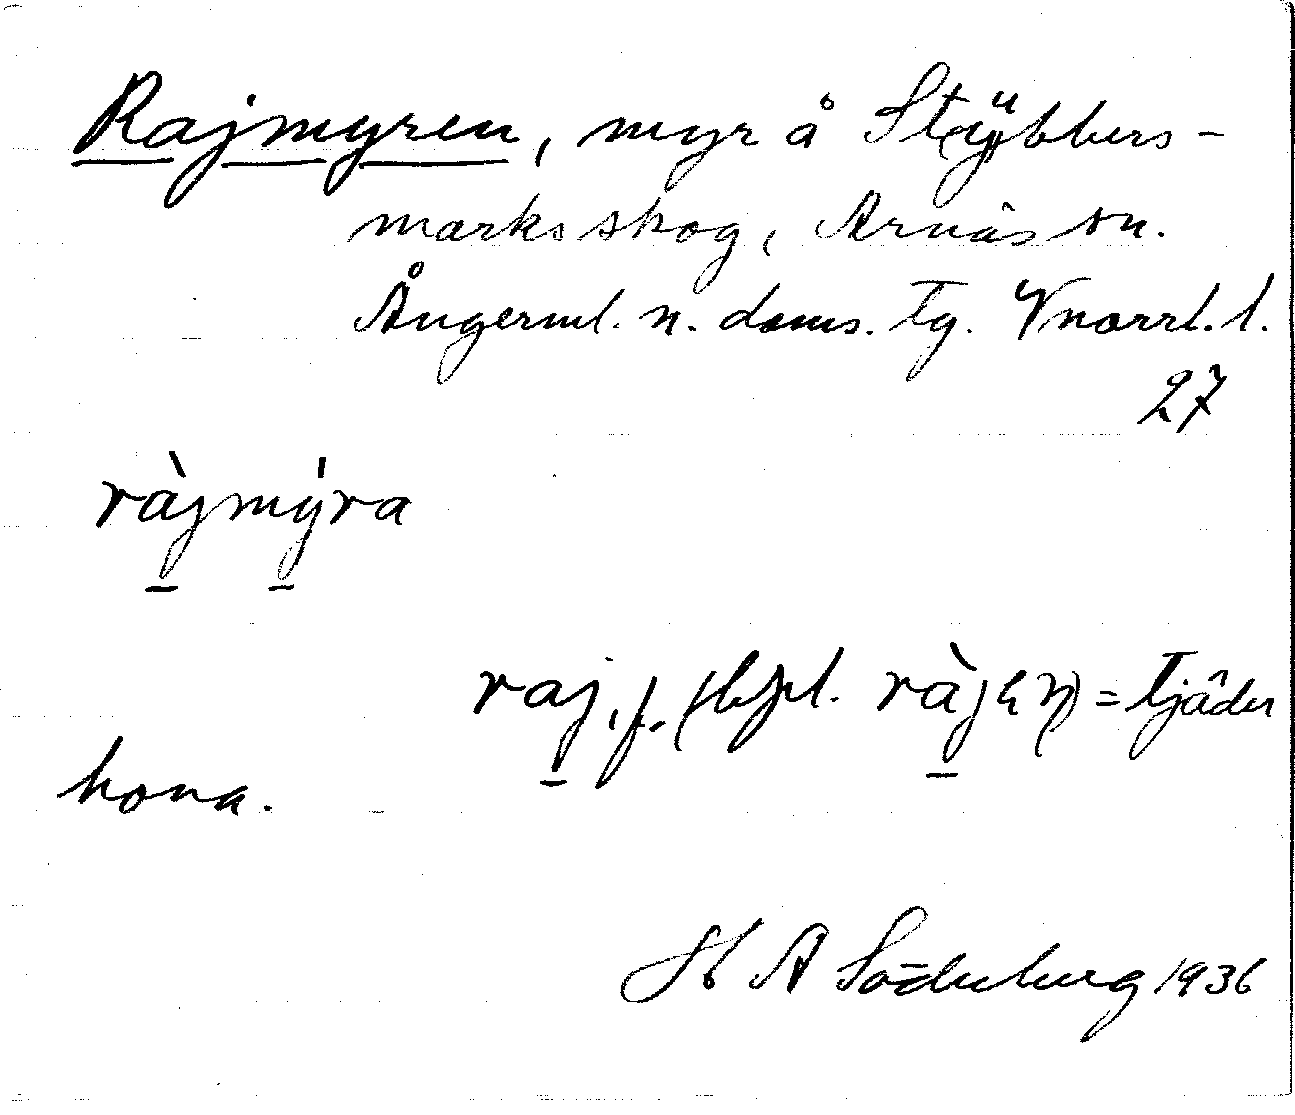 Rajmyren, myr å Stybbers-
marksskog, Arnäs sn.
Ångerml. n. doms. Tg. Vnorrl. l.
27
ràjmýra
raj, f. (bf pl. ràjen) = Tjäder
hona.
St A Söderberg 1936